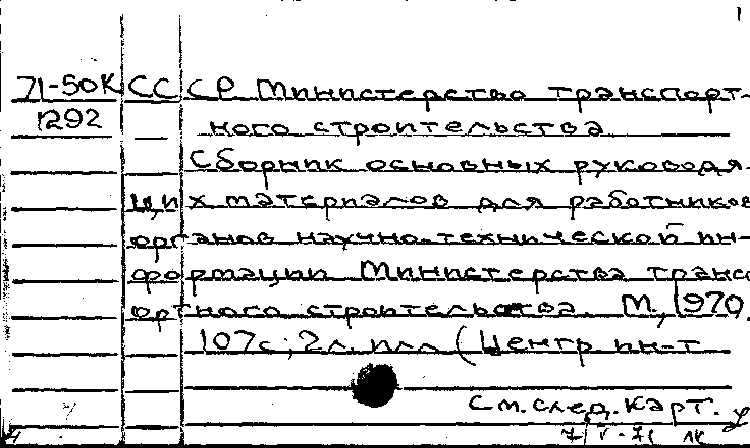 71-50К СССР Министерство транспорт-
1292 ного строительства.
Сборник основных руководя-
щих материалов для работников
органов научно-технической ин-
формации Министерства транс
ортного строительства. М., 1970.
107с; 2л. илл (Центр. ин-т
См. след. карт.